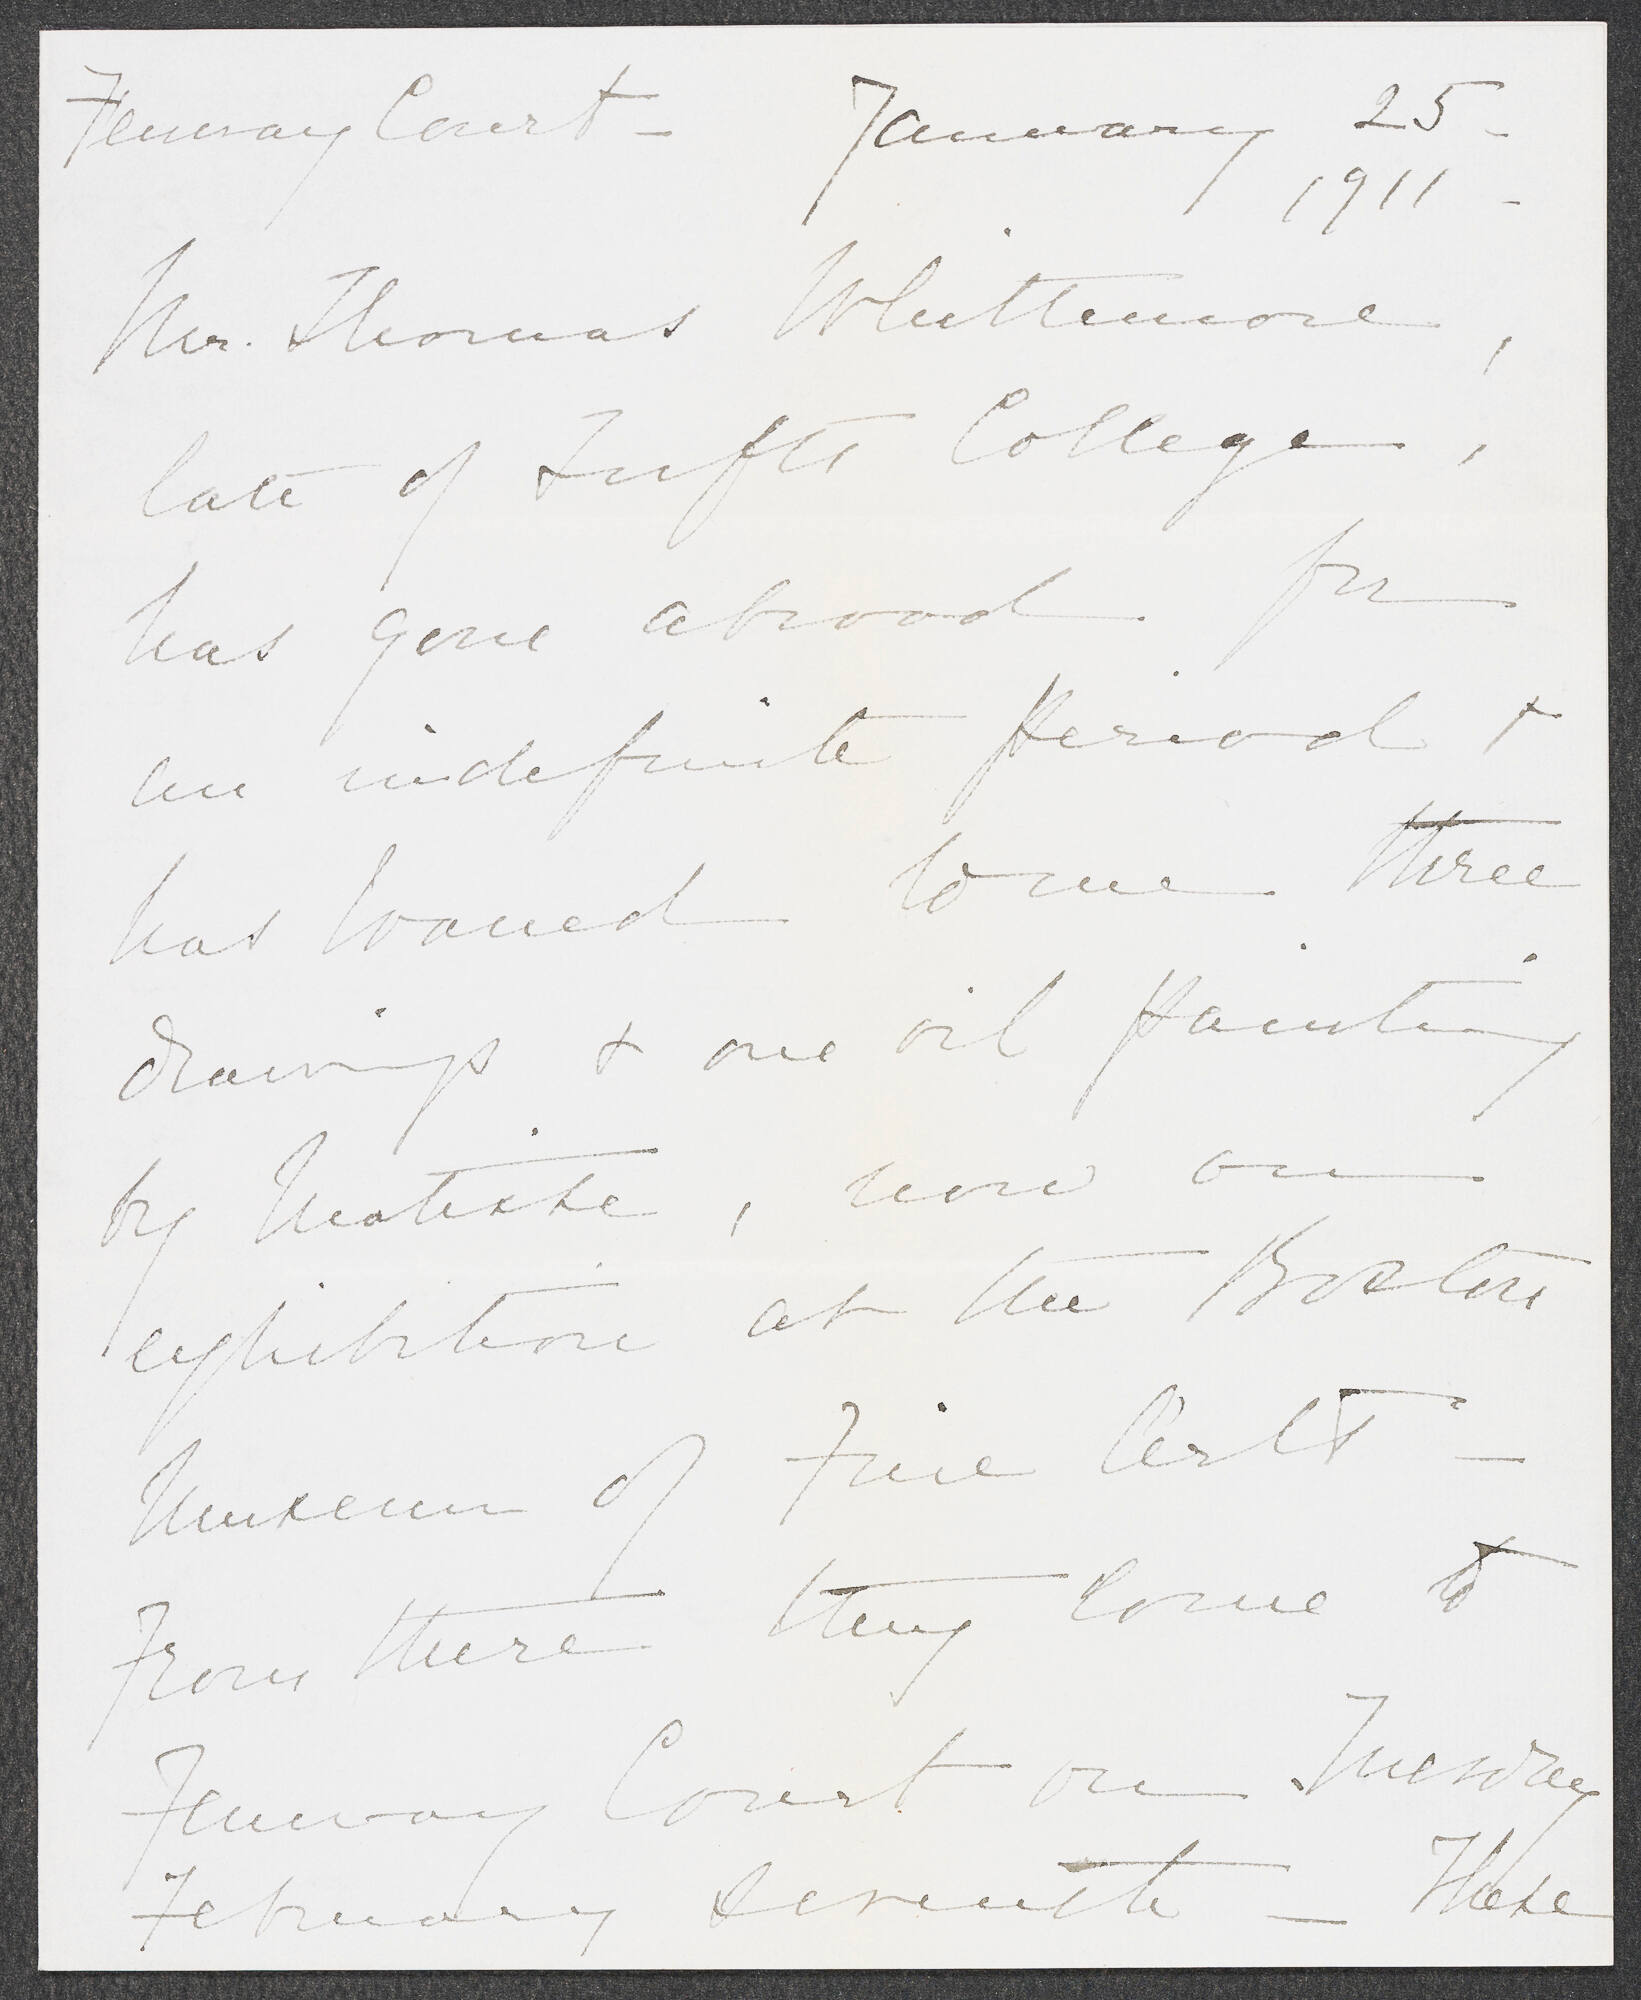 Fenway Court – January 25 –
1911 –
Mr. Thomas Whittemore,
late of Tufts College,
has gone abroad for
an indefinite period +
has loaned to me three
drawings + one oil painting
by Matisse, now on
exhibition at the Boston
Museum of Fine Arts –
From there they come to
Fenway Court on Tuesday
February seventh – These